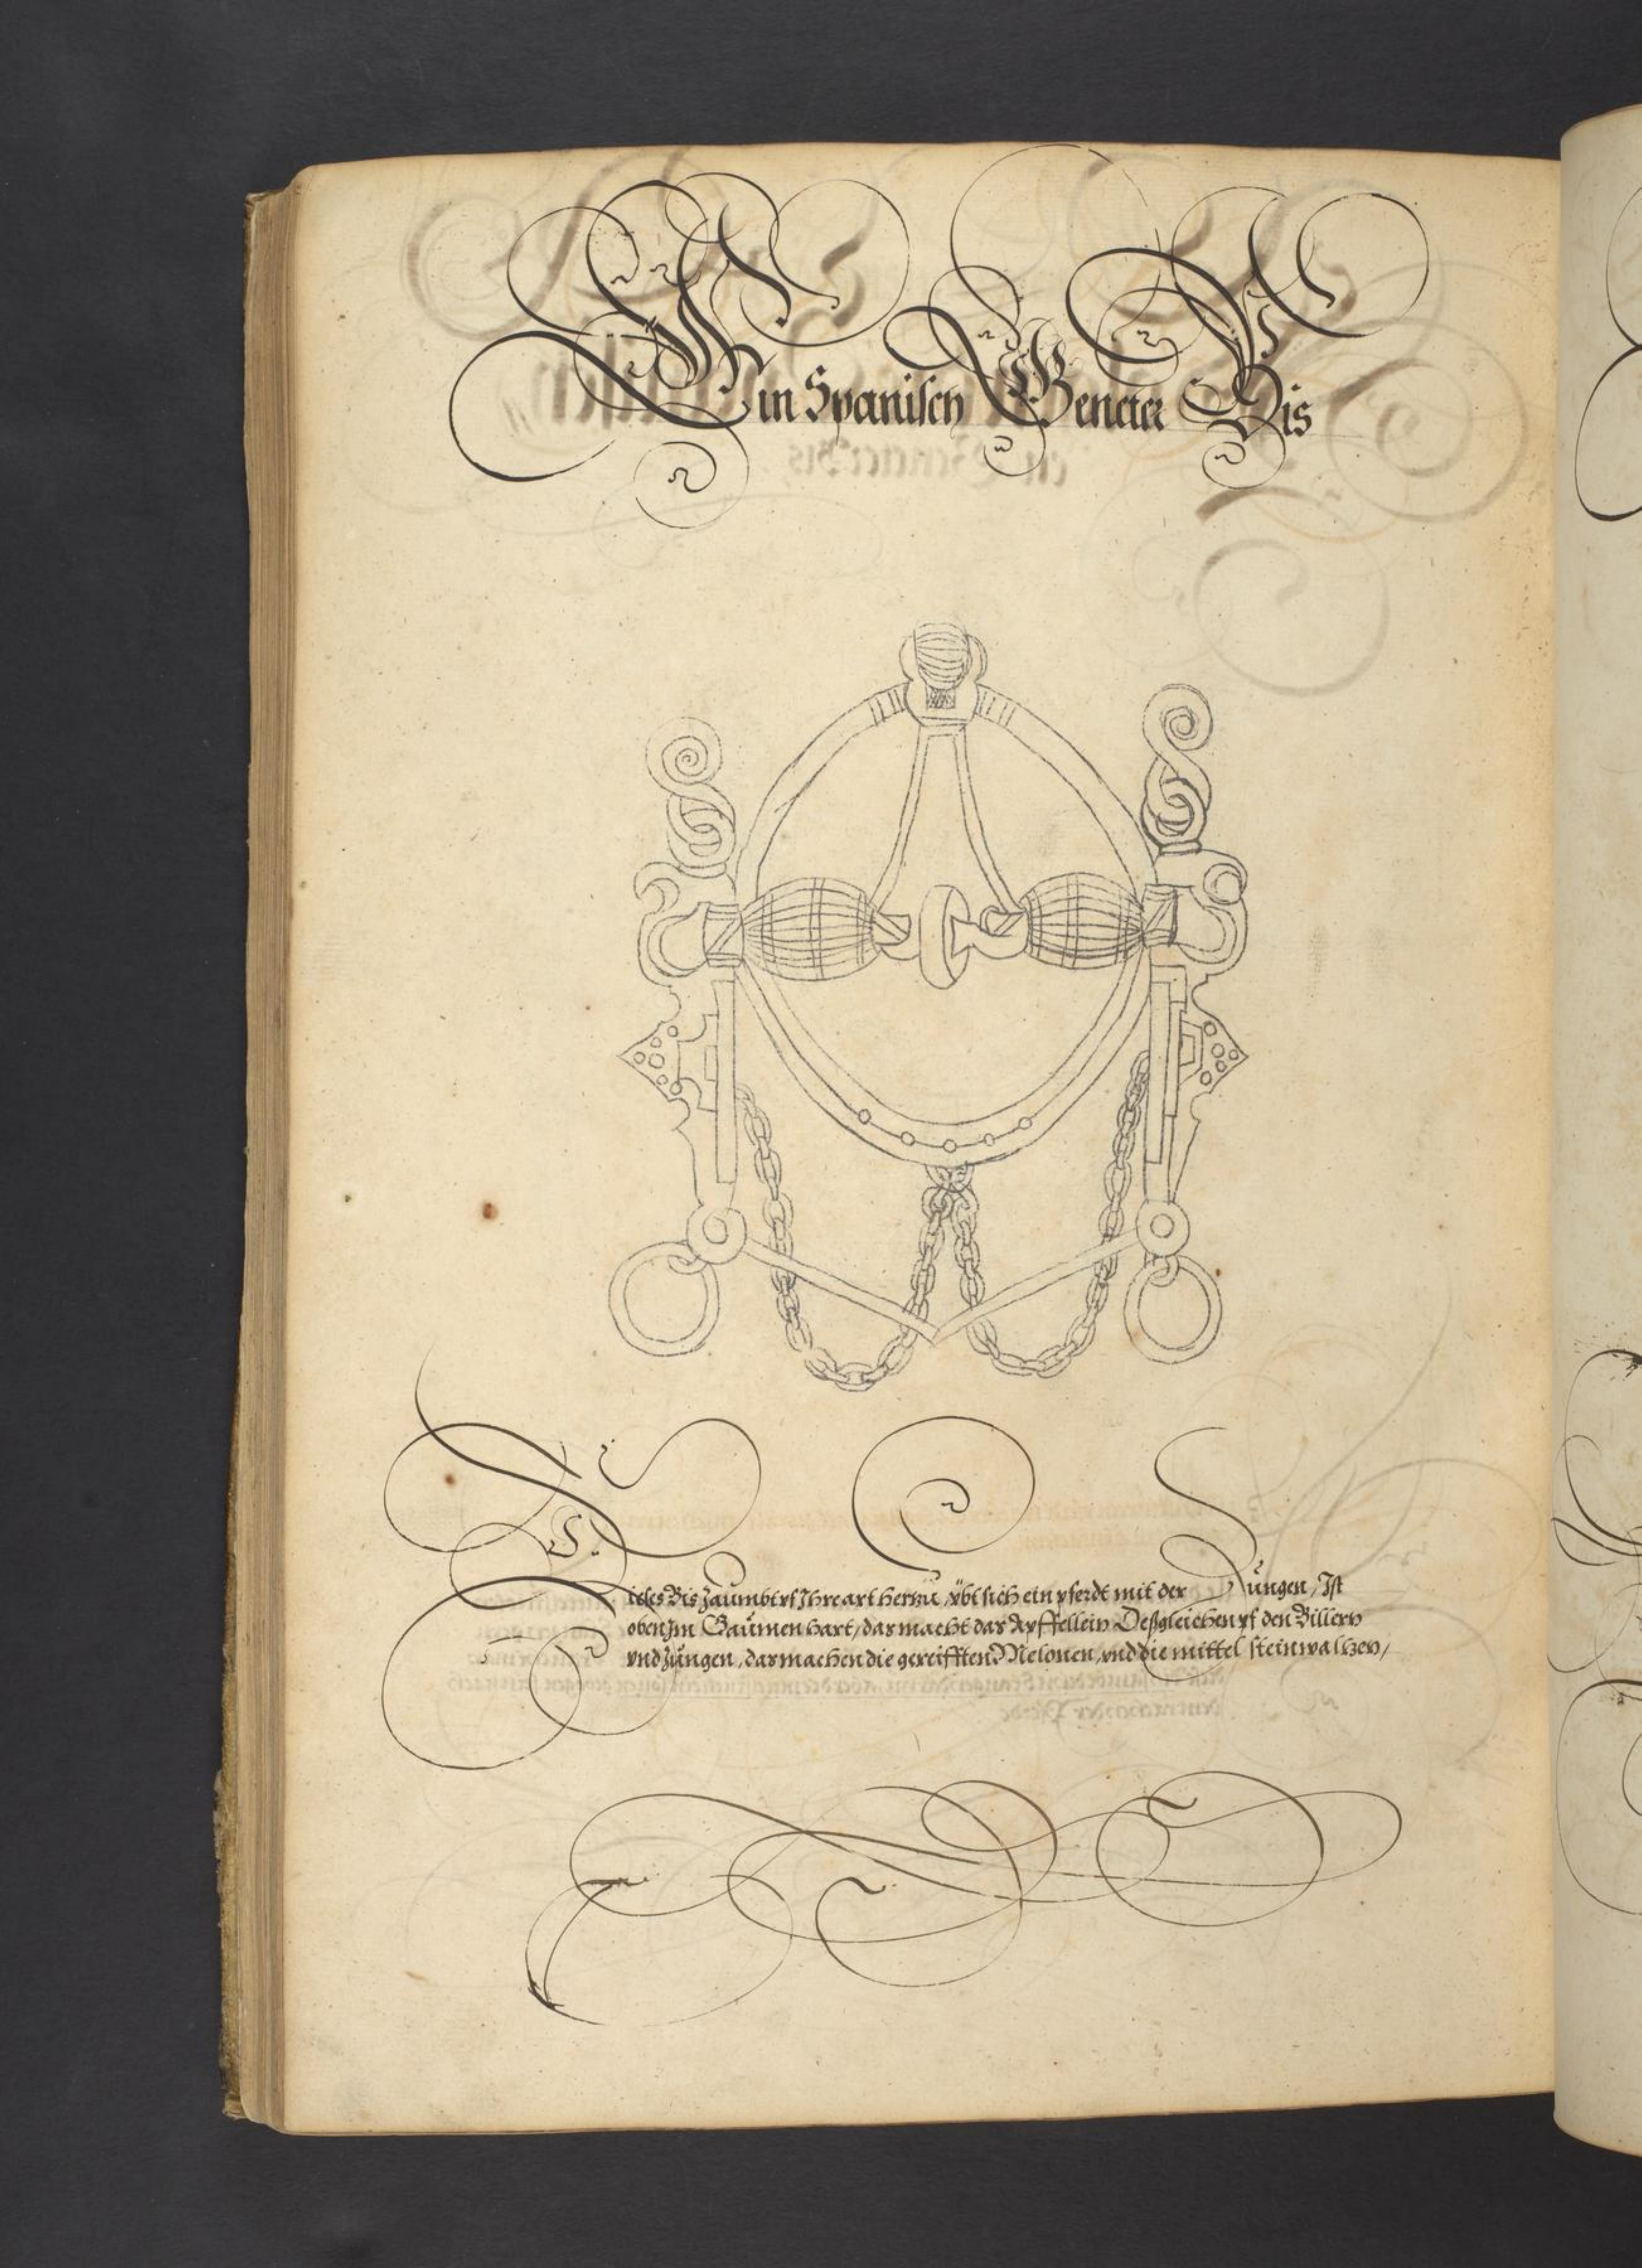 Ein Spanisch Geneter Bis
Dises Bis Zaümbt vf Ihre art herzu, übt sich ein pferdt mit der Züngen, Ist
oben Im Gaümen hart, das macht das Äpffellein Deßgleichen vf den Billern
vnd Züngen, das machen die gereifften Melonen, vnd die mittel steinwalzen,